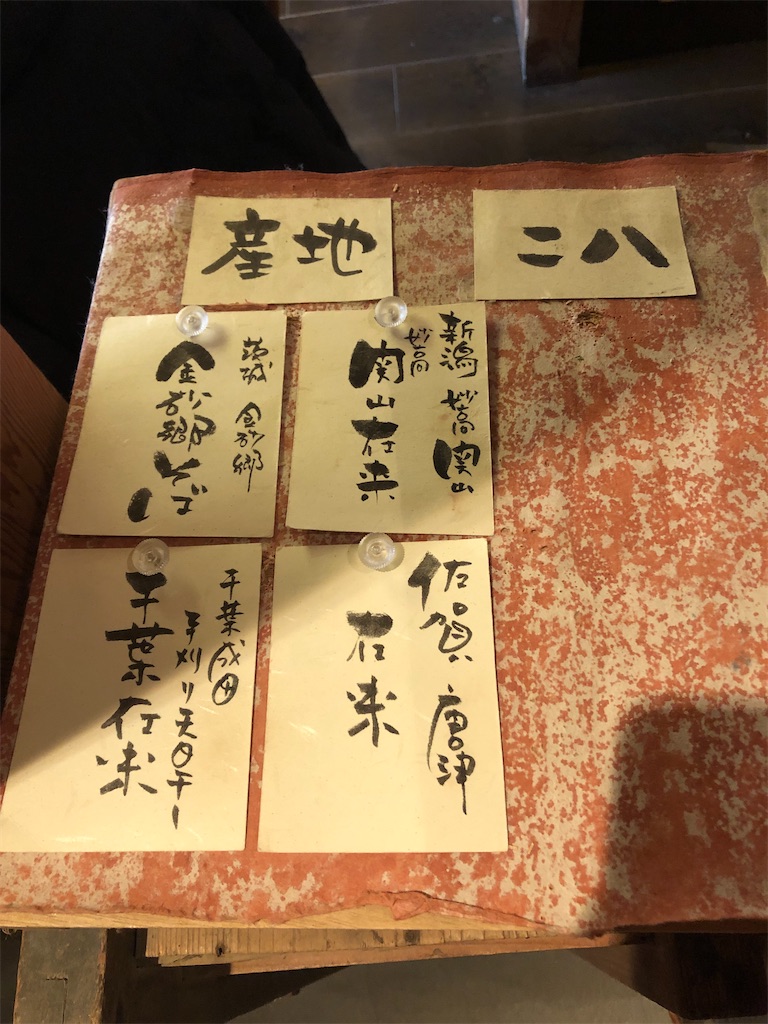 産地
二八
新潟 妙高 関山
妙高
関山在来
茨城 金砂郷
金砂郷そば
佐賀 唐津
在来
千葉成田
手刈り天日干し
千葉在来